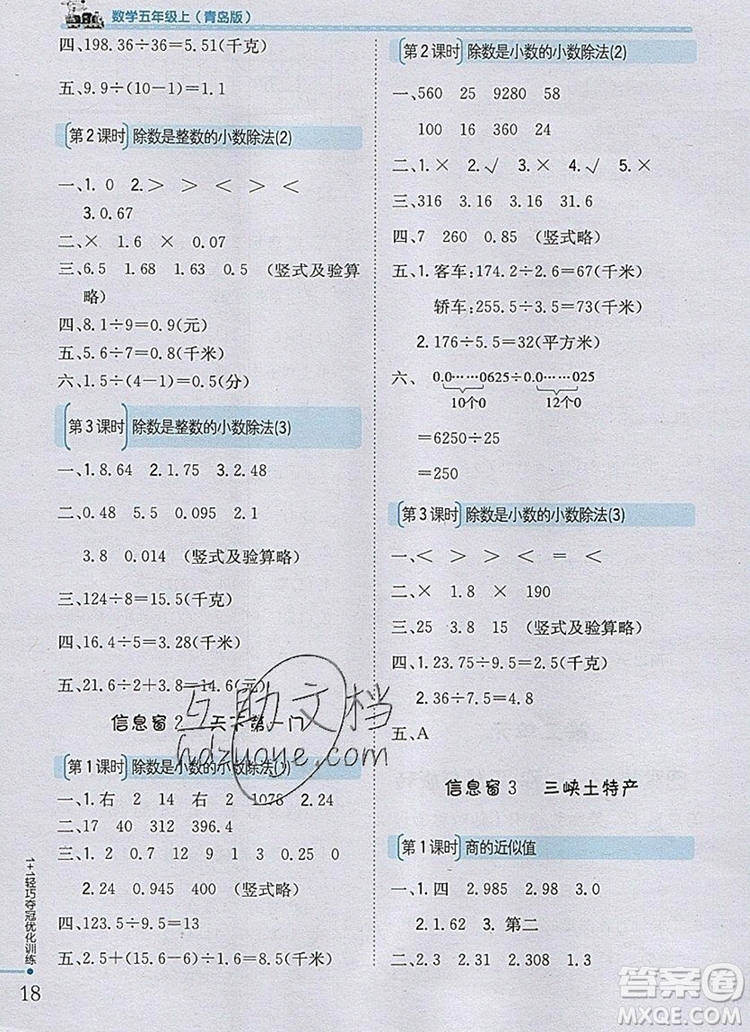 数学五年级上(青岛版)
四、198.36÷36=5.51(千克)
五、9.9÷(10-1)=1.1
第2课时 除数是整数的小数除法(2)
一、1. 0 2.> > > < <
3.0.67
二、× 1.6 × 0.07
三、6.5 1.68 1.63 0.5 (竖式及验算
略)
四、8.1÷9=0.9(元)
五、5.6÷7=0.8(千米)
六、1.5÷(4-1)=0.5(分)
第3课时 除数是整数的小数除法(3)
一、1. 8.64 2.1.75 3.2.48
二、0.48 5.5 0.095 2.1
3.8 0.014 (竖式及验算略)
三、124÷8=15.5(千克)
四、16.4÷5=3.28(千米)
五、21.6÷2+3.8=14.6(元)
信息窗2 天下第一门
第1课时 除数是小数的小数除法(1)
一、1. 右 2 右 2 1078 2.24
二、17 40 312 396.4
三、1. 2 0.7 12 9 1 3 0.25
2.24 0.45 940 (竖式及验算略)
四、123.5÷9.5=13
五、2.5+(15-6.6)÷6=3.9(元)
第2课时 除数是小数的小数除法(2)
一、560 25 9280 58
100 16 360 24
二、1.× 2.× 3.√ 4.√
三、316 31.6 3.16 316
四、7 260 0.85 (竖式略)
五、1.客车:174.2÷2.6=67(千米)
轿车:255.5÷3.5=73(千米)
2.176÷5.5=32(平方米)
六、0.0……0625÷0.0……025
10个0 12个0
=6250÷25
=250
第3课时 除数是小数的小数除法(3)
一、< > > < = <
二、× 1.8 × 190
三、25 3.8 15 (竖式及验算略)
四、1.23.75÷9.5=2.5(千克)
2.36÷7.5=4.8
五、A
信息窗3 三峡土特产
第1课时 商的近似值
一、1.四 2.985 2.98 3
2.1.62 3.第二
二、2.3 2.1 3.6 0.5
1+1轻巧夺冠优化训练
18
互助文档
hdzuoye.com
答案圈
MXQE.COM